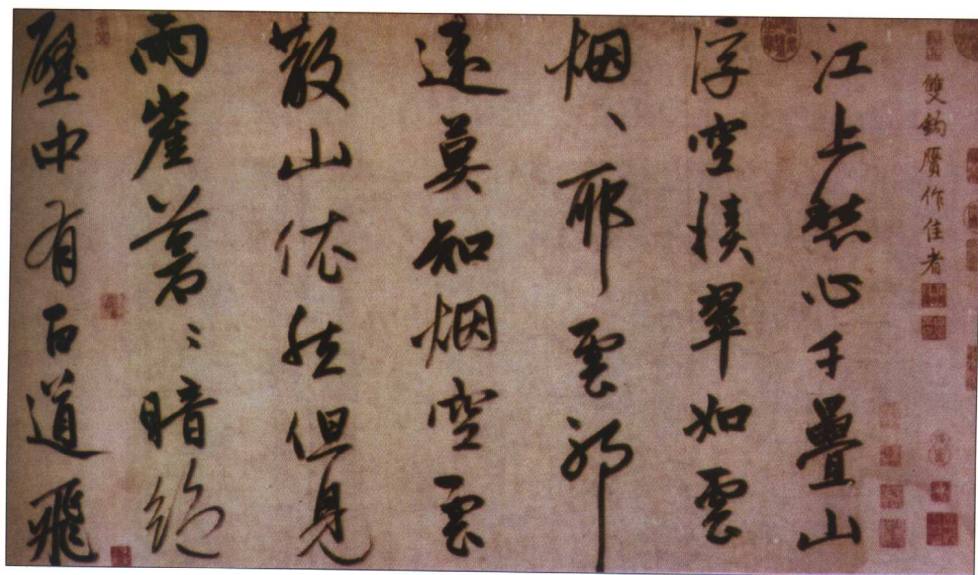 雙鈎贋作佳者
江上愁心千疊山
浮空積翠如雲
烟、耶雲邪
遠莫知烟空雲
散山依然但見
兩崖蒼〻暗絕
壁中有百道飛